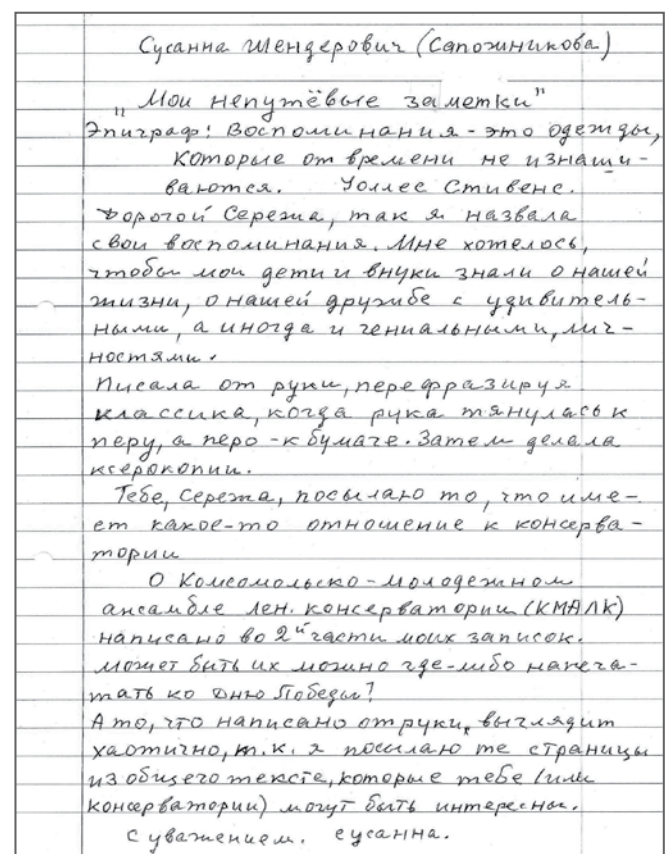 Сусанна Шендерович (Сапожникова)
"Мои непутёвые заметки"
Эпиграф: Воспоминания - это одежды,
которые от времени не изнаши-
ваются. Уоллес Стивенс.
Дорогой Сережа, так я назвала
свои воспоминания. Мне хотелось,
чтобы мои дети и внуки знали о нашей
жизни, о нашей дружбе с удивитель-
ными, а иногда и гениальными, лич-
ностями.
Писала от руки, перефразируя
классика, когда рука тянулась к
перу, а перо - к бумаге. Затем делала
ксерокопии.
Тебе, Сережа, посылаю то, что име-
ет какое-то отношение к консерва-
тории
О Комсомольско-молодежном
ансамбле лен. консерватории (КМАЛК)
написано во 2й части моих записок.
может быть их можно где-либо напеча-
тать ко Дню Победы?
А то, что написано от руки, выглядит
хаотично, т.к. я посылаю те страницы
из общего текста, которые тебе (или
консерватории) могут быть интересны.
С уважением. Сусанна.